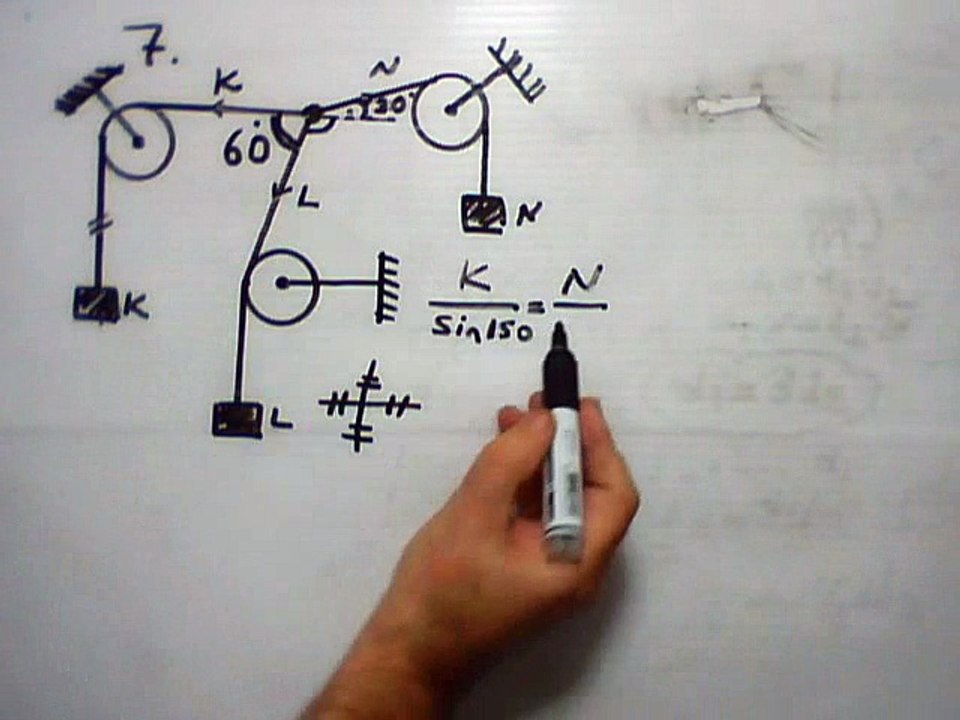 7.
K
N
30
60°
L
N
K
K N
— = —
sin150
L